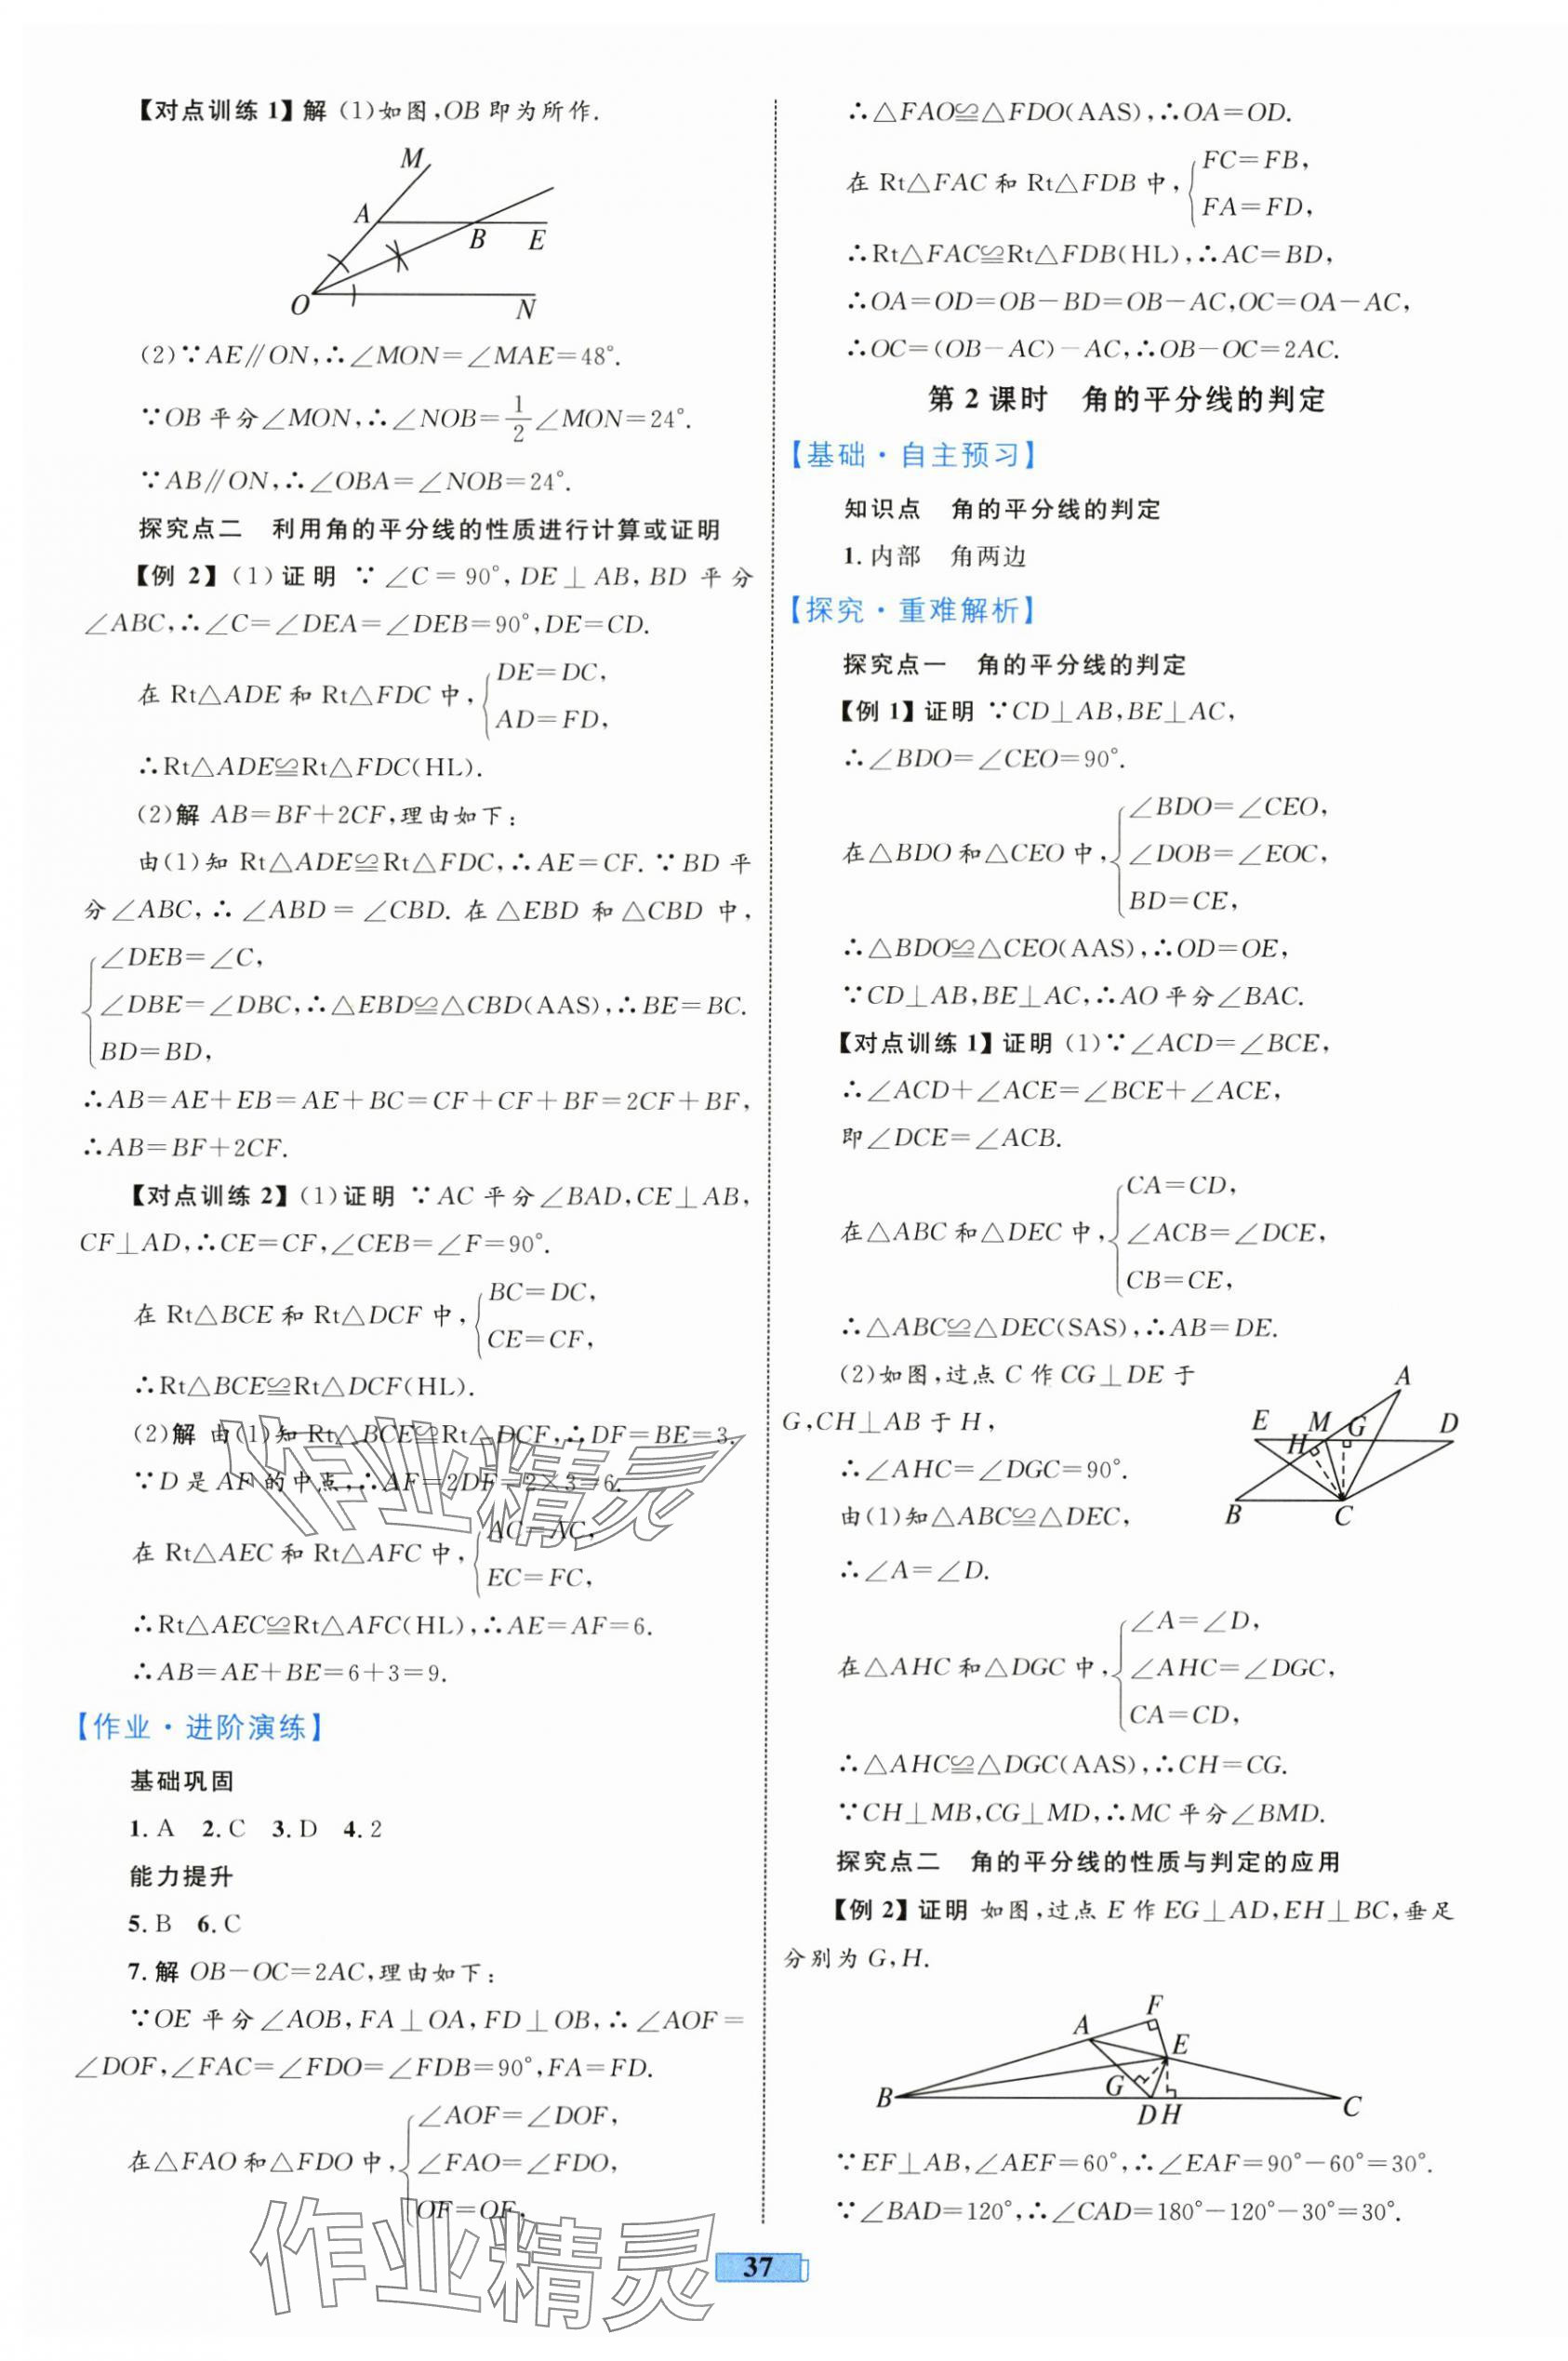 【对点训练1】解 (1)如图,OB即为所作.
M
A
B
E
O
N
(2)∵AE∥ON,∴∠MON=∠MAE=48°.
∵OB平分∠MON,∴∠NOB=1/2∠MON=24°.
∵AB∥ON,∴∠OBA=∠NOB=24°.
探究点二 利用角的平分线的性质进行计算或证明
【例2】(1)证明 ∵∠C=90°,DE⊥AB,BD平分
∠ABC,∴∠C=∠DEA=∠DEB=90°,DE=CD.
在Rt△ADE和Rt△FDC中,{DE=DC,
AD=FD,
∴Rt△ADE≌Rt△FDC(HL).
(2)解 AB=BF+2CF,理由如下:
由(1)知Rt△ADE≌Rt△FDC,∴AE=CF.∵BD平
分∠ABC,∴∠ABD=∠CBD.在△EBD和△CBD中,
{∠DEB=∠C,
∠DBE=∠DBC,∴△EBD≌△CBD(AAS),∴BE=BC.
BD=BD,
∴AB=AE+EB=AE+BC=CF+CF+BF=2CF+BF,
∴AB=BF+2CF.
【对点训练2】(1)证明 ∵AC平分∠BAD,CE⊥AB,
CF⊥AD,∴CE=CF,∠CEB=∠F=90°.
在Rt△BCE和Rt△DCF中,{BC=DC,
CE=CF,
∴Rt△BCE≌Rt△DCF(HL).
(2)解 由(1)知Rt△BCE≌Rt△DCF,∴DF=BE=3.
∵D是AF的中点,∴AF=2DF=2×3=6.
在Rt△AEC和Rt△AFC中,{AC=AC,
EC=FC,
∴Rt△AEC≌Rt△AFC(HL),∴AE=AF=6.
∴AB=AE+BE=6+3=9.
【作业·进阶演练】
基础巩固
1.A 2.C 3.D 4.2
能力提升
5.B 6.C
7.解 OB-OC=2AC,理由如下:
∵OE平分∠AOB,FA⊥OA,FD⊥OB,∴∠AOF=
∠DOF,∠FAC=∠FDO=∠FDB=90°,FA=FD.
在△FAO和△FDO中,{∠AOF=∠DOF,
∠FAO=∠FDO,
OF=OF,
∴△FAO≌△FDO(AAS),∴OA=OD.
在Rt△FAC和Rt△FDB中,{FC=FB,
FA=FD,
∴Rt△FAC≌Rt△FDB(HL),∴AC=BD,
∴OA=OD=OB-BD=OB-AC,OC=OA-AC,
∴OC=(OB-AC)-AC,∴OB-OC=2AC.
第2课时 角的平分线的判定
【基础·自主预习】
知识点 角的平分线的判定
1.内部 角两边
【探究·重难解析】
探究点一 角的平分线的判定
【例1】证明 ∵CD⊥AB,BE⊥AC,
∴∠BDO=∠CEO=90°.
在△BDO和△CEO中,{∠BDO=∠CEO,
∠DOB=∠EOC,
BD=CE,
∴△BDO≌△CEO(AAS),∴OD=OE,
∵CD⊥AB,BE⊥AC,∴AO平分∠BAC.
【对点训练1】证明 (1)∵∠ACD=∠BCE,
∴∠ACD+∠ACE=∠BCE+∠ACE,
即∠DCE=∠ACB.
在△ABC和△DEC中,{CA=CD,
∠ACB=∠DCE,
CB=CE,
∴△ABC≌△DEC(SAS),∴AB=DE.
(2)如图,过点C作CG⊥DE于
G,CH⊥AB于H,
∴∠AHC=∠DGC=90°.
由(1)知△ABC≌△DEC,
∴∠A=∠D.
A
E M G D
H
B C
在△AHC和△DGC中,{∠A=∠D,
∠AHC=∠DGC,
CA=CD,
∴△AHC≌△DGC(AAS),∴CH=CG.
∵CH⊥MB,CG⊥MD,∴MC平分∠BMD.
探究点二 角的平分线的性质与判定的应用
【例2】证明 如图,过点E作EG⊥AD,EH⊥BC,垂足
分别为G,H.
F
A
E
G
B
D H
C
∵EF⊥AB,∠AEF=60°,∴∠EAF=90°-60°=30°.
∵∠BAD=120°,∴∠CAD=180°-120°-30°=30°.
37
作业精灵
作业精灵